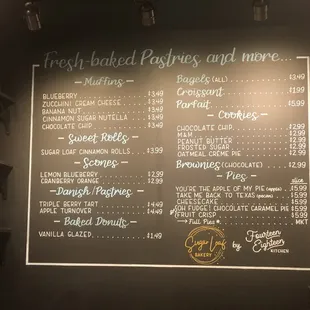 Fresh-baked Pastries and more...
- Muffins -
BLUEBERRY $3.49
ZUCCHINI CREAM CHEESE $3.49
BANANA NUT $3.49
CINNAMON SUGAR NUTELLA $3.49
CHOCOLATE CHIP $3.49
- Sweet Rolls -
SUGAR LOAF CINNAMON ROLLS $3.99
- Scones -
LEMON BLUEBERRY $2.99
CRANBERRY ORANGE $2.99
- Danish/Pastries -
TRIPLE BERRY TART $4.49
APPLE TURNOVER $4.49
- Baked Donuts -
VANILLA GLAZED $1.49
Bagels (ALL) $3.49
Croissant $1.99
Parfait $5.99
- Cookies -
CHOCOLATE CHIP $2.99
M&M $2.99
PEANUT BUTTER $2.99
FROSTED SUGAR $2.99
OATMEAL CRÈME PIE $2.99
Brownies (CHOCOLATE) $2.99
- Pies - slice
YOU'RE THE APPLE OF MY PIE (apple) $5.99
TAKE ME BACK TO TEXAS (pecan) $5.99
CHEESECAKE $5.99
(OH FUDGE!) CHOCOLATE CARAMEL PIE $5.99
FRUIT CRISP $5.99
Full Pies MKT
Sugar Loaf
BAKERY
by
Fourteen
Eighteen
KITCHEN